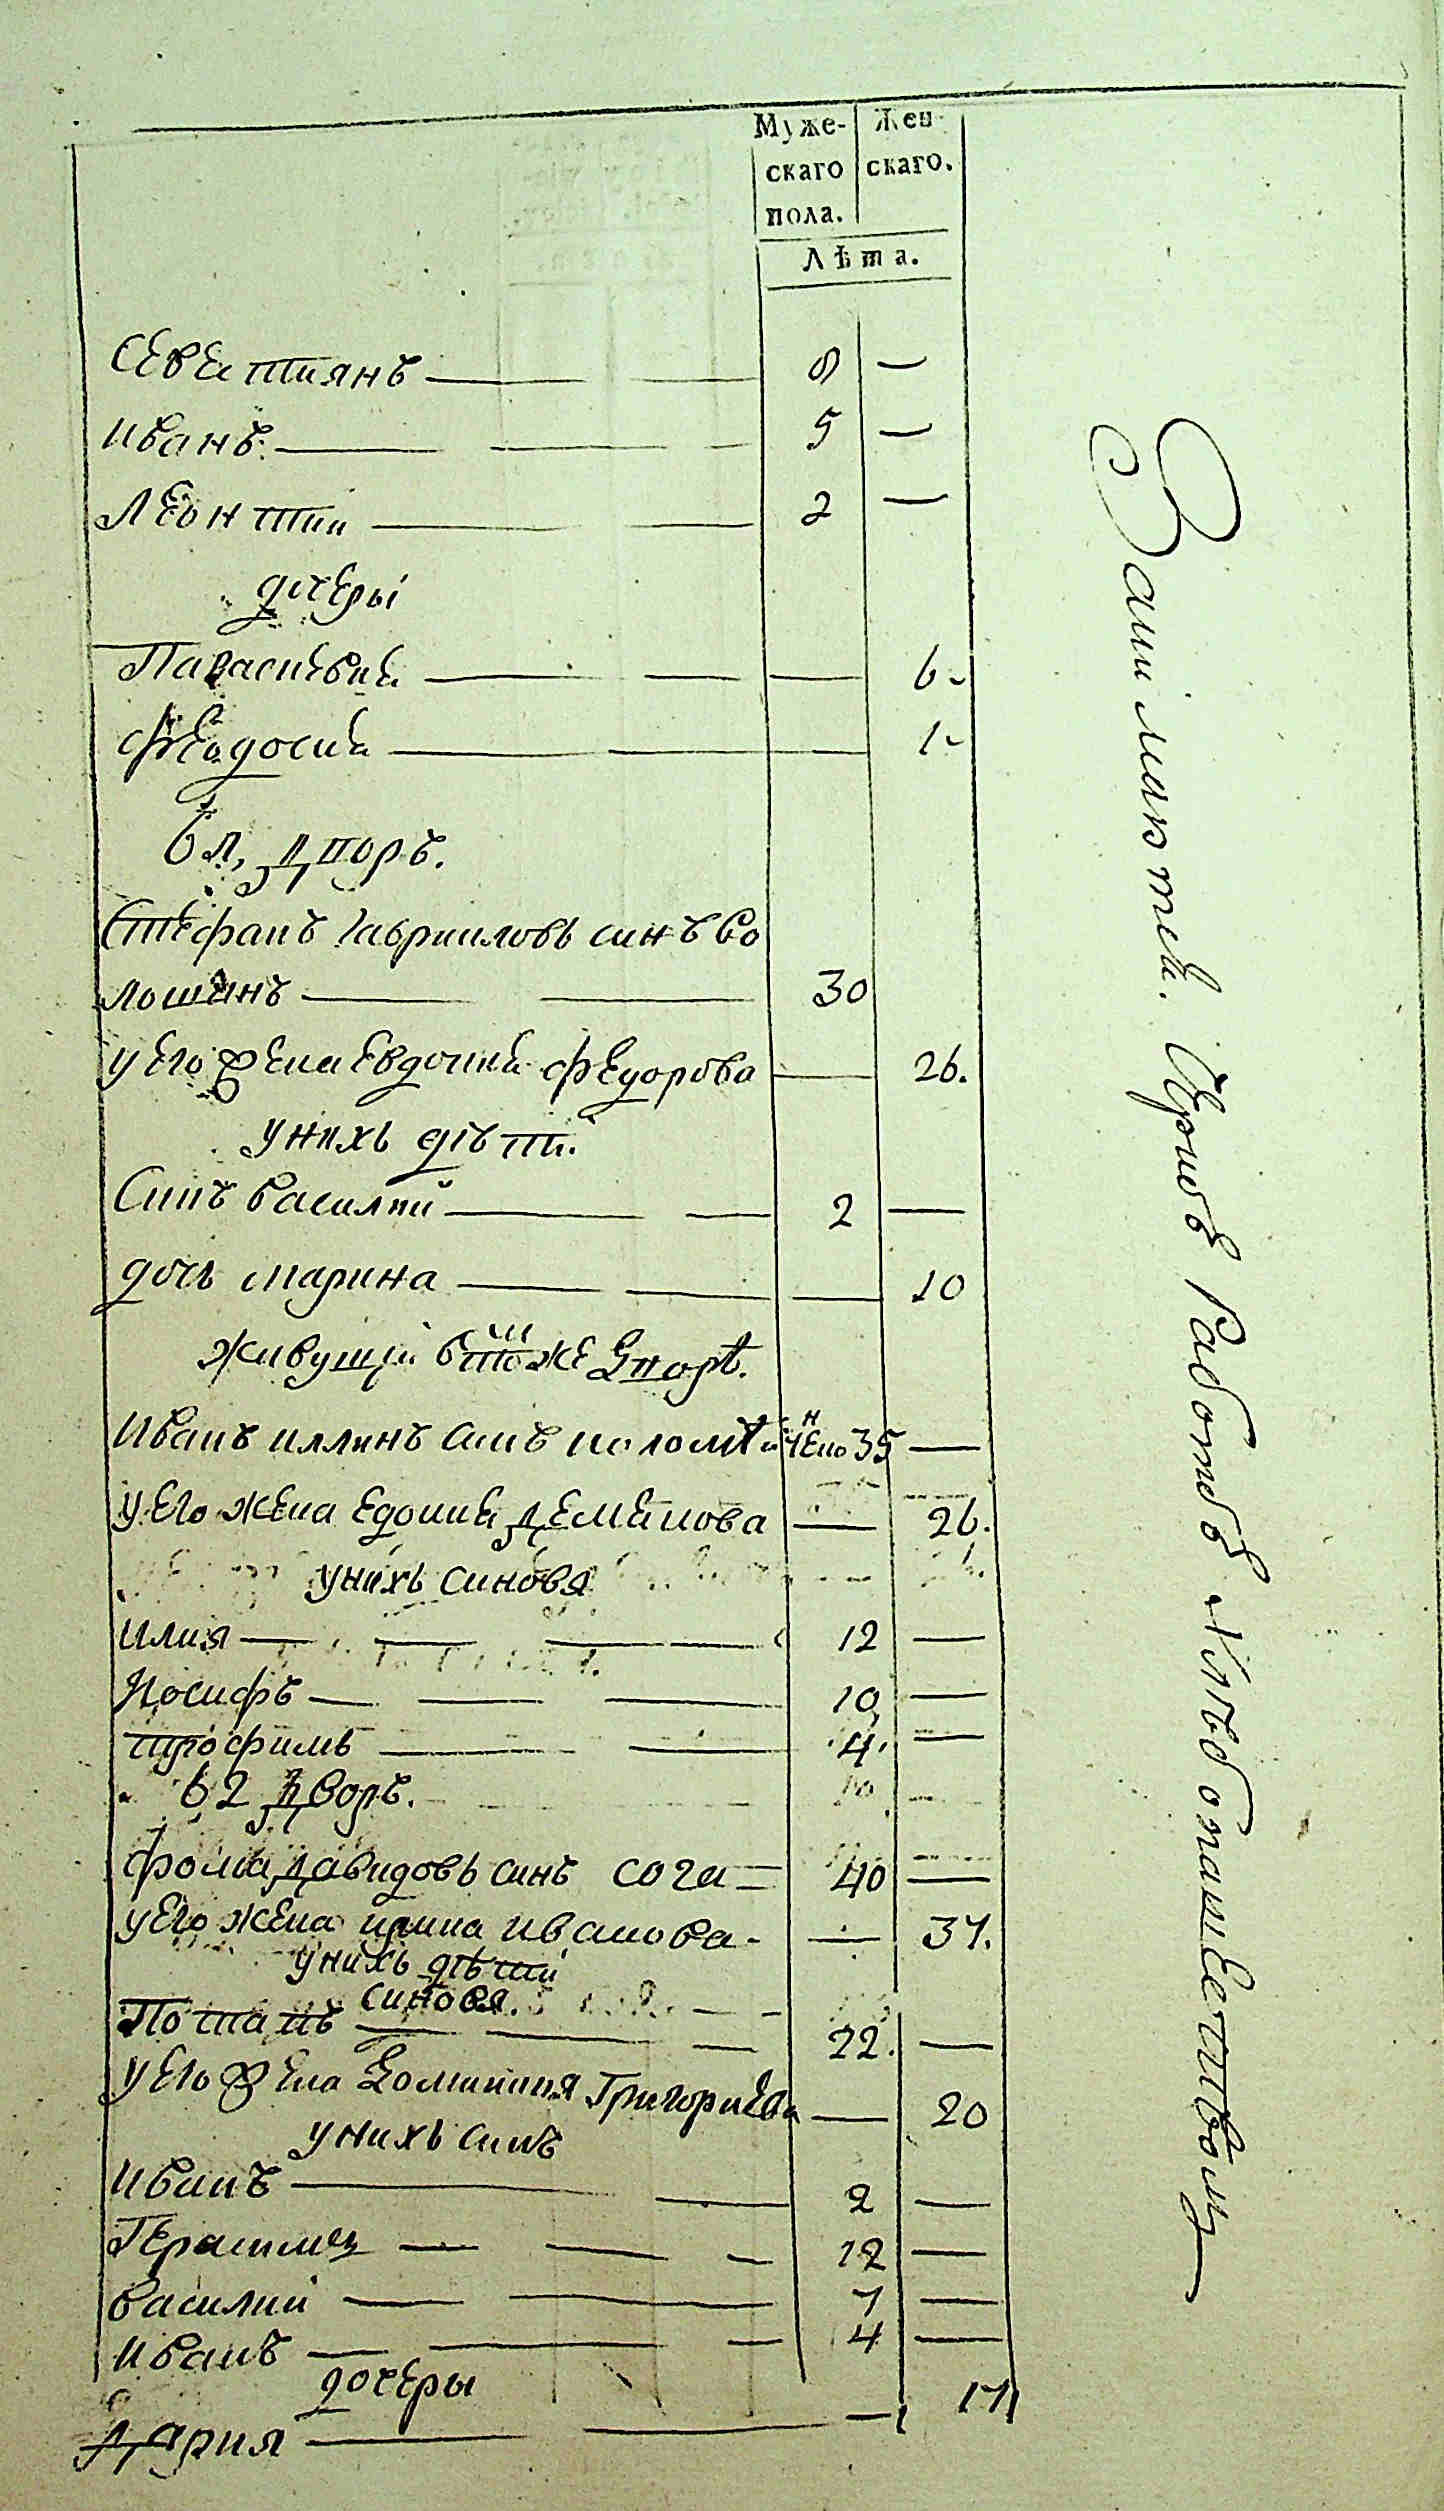 Муже- Жен-
скаго скаго.
пола.
Лѣта.
Севестиянъ — 8 —
Иванъ — 5 —
Леонтии — 2 —
дочеры
Параскевия — 6
Феодосия — 1
Стефанъ Гаврииловъ синъ Во
лошинъ — 30
у его жена Евдокия Федорова — 26.
у нихъ дѣти
Синъ василий — 2 —
дочь марина — 10
живущи в томже дворѣ.
Иванъ иллинъ синъ 35 —
у его жена Едокия Демянова — 26.
у нихъ синовя
илия — 12 —
Иосифъ — 10 —
трофимъ — 4. —
в 2 дворъ.
фома давидовъ синъ сога — 40 —
у его жена ирина иванова — 37.
у нихъ дѣти
синовя.
Потапъ — 22. —
у его жена Домникия Григориева — 20
у нихъ синъ
Иванъ — 2 —
Герасимъ — 12 —
василий — 7 —
иванъ — 4 —
дочеры
Дария — 17